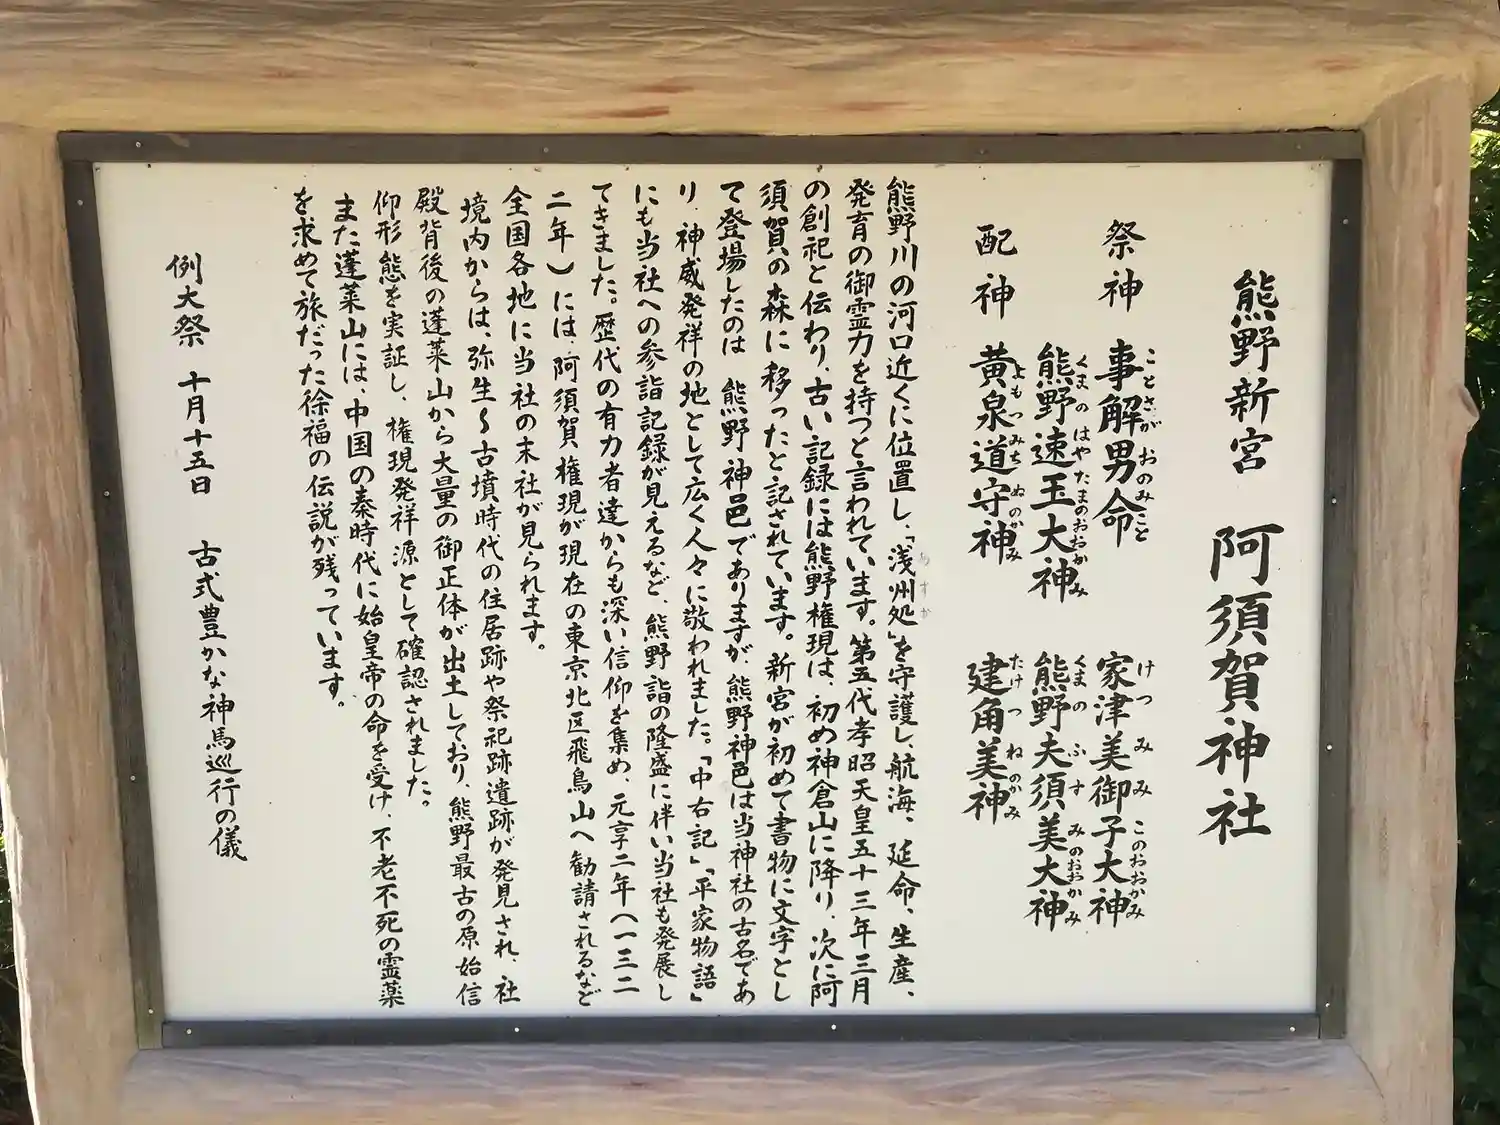 熊野新宮 阿須賀神社
祭神 事解男命 家津美御子大神
ことさかおのみこと けつみみこのおおかみ
熊野速玉大神 熊野夫須美大神
くまのはやたまのおおかみ くまのふすみのおおかみ
配神 黄泉道守神 建角美神
よもつみちぬのかみ たけつねのかみ
熊野川の河口近くに位置し、「浅州処」を守護し、航海、延命、生産、
あすか
発育の御霊力を持つと言われています。第五代孝昭天皇五十三年三月
の創祀と伝わり、古い記録には熊野権現は、初め神倉山に降り、次に阿
須賀の森に移ったと記されています。新宮が初めて書物に文字とし
て登場したのは 熊野神邑でありますが、熊野神邑は当神社の古名であ
り、神威発祥の地として広く人々に敬われました。「中右記」「平家物語」
にも当社への参詣記録が見えるなど、熊野詣の隆盛に伴い当社も発展し
てきました。歴代の有力者達からも深い信仰を集め、元享二年（一三二
二年）には、阿須賀権現が現在の東京北区飛鳥山へ勧請されるなど
全国各地に当社の末社が見られます。
境内からは、弥生～古墳時代の住居跡や祭祀跡遺跡が発見され、社
殿背後の蓬莱山から大量の御正体が出土しており、熊野最古の原始信
仰形態を実証し、権現発祥源として確認されました。
また蓬莱山には、中国の秦時代に始皇帝の命を受け、不老不死の霊薬
を求めて旅だった徐福の伝説が残っています。
例大祭 十月十五日 古式豊かな神馬巡行の儀